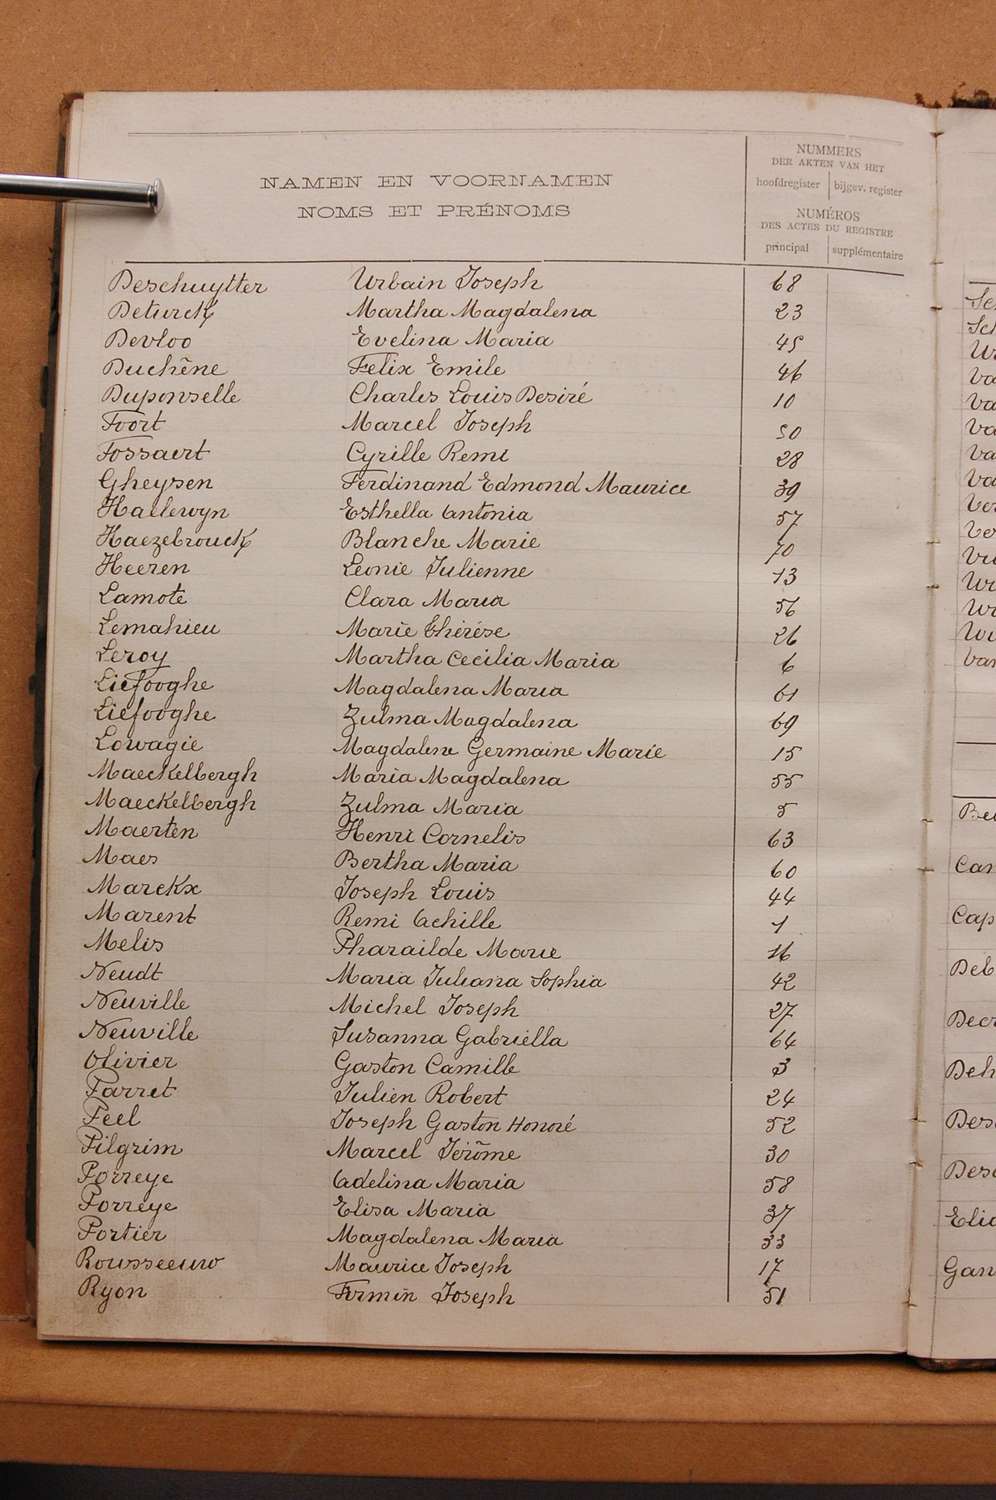 NAMEN EN VOORNAMEN
NOMS ET PRÉNOMS
NUMMERS
DER AKTEN VAN HET
hoofdregister bijgev. register
NUMÉROS
DES ACTES DU REGISTRE
principal supplémentaire
Deschuytter Urbain Joseph 68
Deturck Martha Magdalena 23
Devloo Evelina Maria 45
Duchêne Felix Emile 46
Duponselle Charles Louis Desiré 10
Foort Marcel Joseph 50
Fossaert Cyrille Remi 28
Gheysen Ferdinand Edmond Maurice 39
Hallewyn Esthella Antonia 57
Haezebrouck Blanche Marie 70
Heeren Leonie Julienne 13
Lamote Clara Maria 56
Lemahieu Marie Thérèse 26
Leroy Martha Cecilia Maria 6
Liefooghe Magdalena Maria 61
Liefooghe Zulma Magdalena 69
Lowagie Magdalene Germaine Marie 15
Maeckelbergh Maria Magdalena 55
Maeckelbergh Zulma Maria 5
Maerten Henri Cornelis 63
Maes Bertha Maria 60
Marckx Joseph Louis 44
Marent Remi Achille 1
Melis Pharaïlde Marie 16
Neudt Maria Juliana Sophia 42
Neuville Michel Joseph 27
Neuville Susanna Gabriëlla 64
Olivier Gaston Camille 3
Parret Julien Robert 24
Peel Joseph Gaston Honoré 52
Pilgrim Marcel Jérôme 30
Porreye Adelina Maria 58
Porreye Elisa Maria 37
Portier Magdalena Maria 33
Rousseeuw Maurice Joseph 17
Ryon Firmin Joseph 51